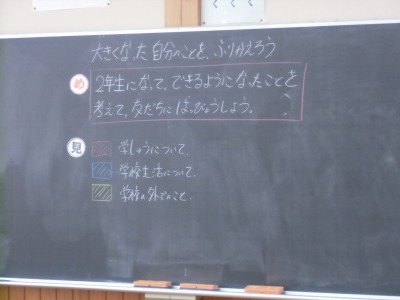 大きくなった自分のことを、ふりかえろう
め
2年生になって、できるようになったことを
考えて、友だちにはっぴょうしよう。
見
学しゅうについて、
学校生活について、
学校の外でのこと、